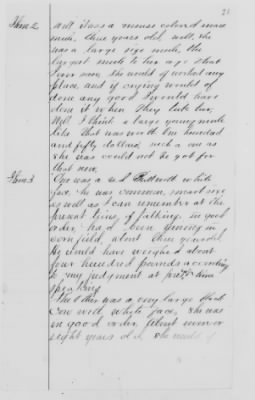 21
Item 2 Well it was a mouse colored mare
mule, three years old, well, she
was a large size mule, the
largest mule to her age that
I ever saw, she would of worked any
place, and if crying would of
done any good I would have
done it when they took her.
Well I think a large young mule
like that was worth one hundred
and fifty dollars, such a one as
she was could not be got for
that now.
Item 3 One was a red Bull with white
face, he was common, smart size
as well as I can remember at the
present time, of talking, in good
order, had been running in
corn field, about three years old,
He would have weighed about
four hundred pounds according
to my judgment at present time
speaking
The other was a very large black
Cow with white face, she was
in good order, about seven or
eight years old, she would of